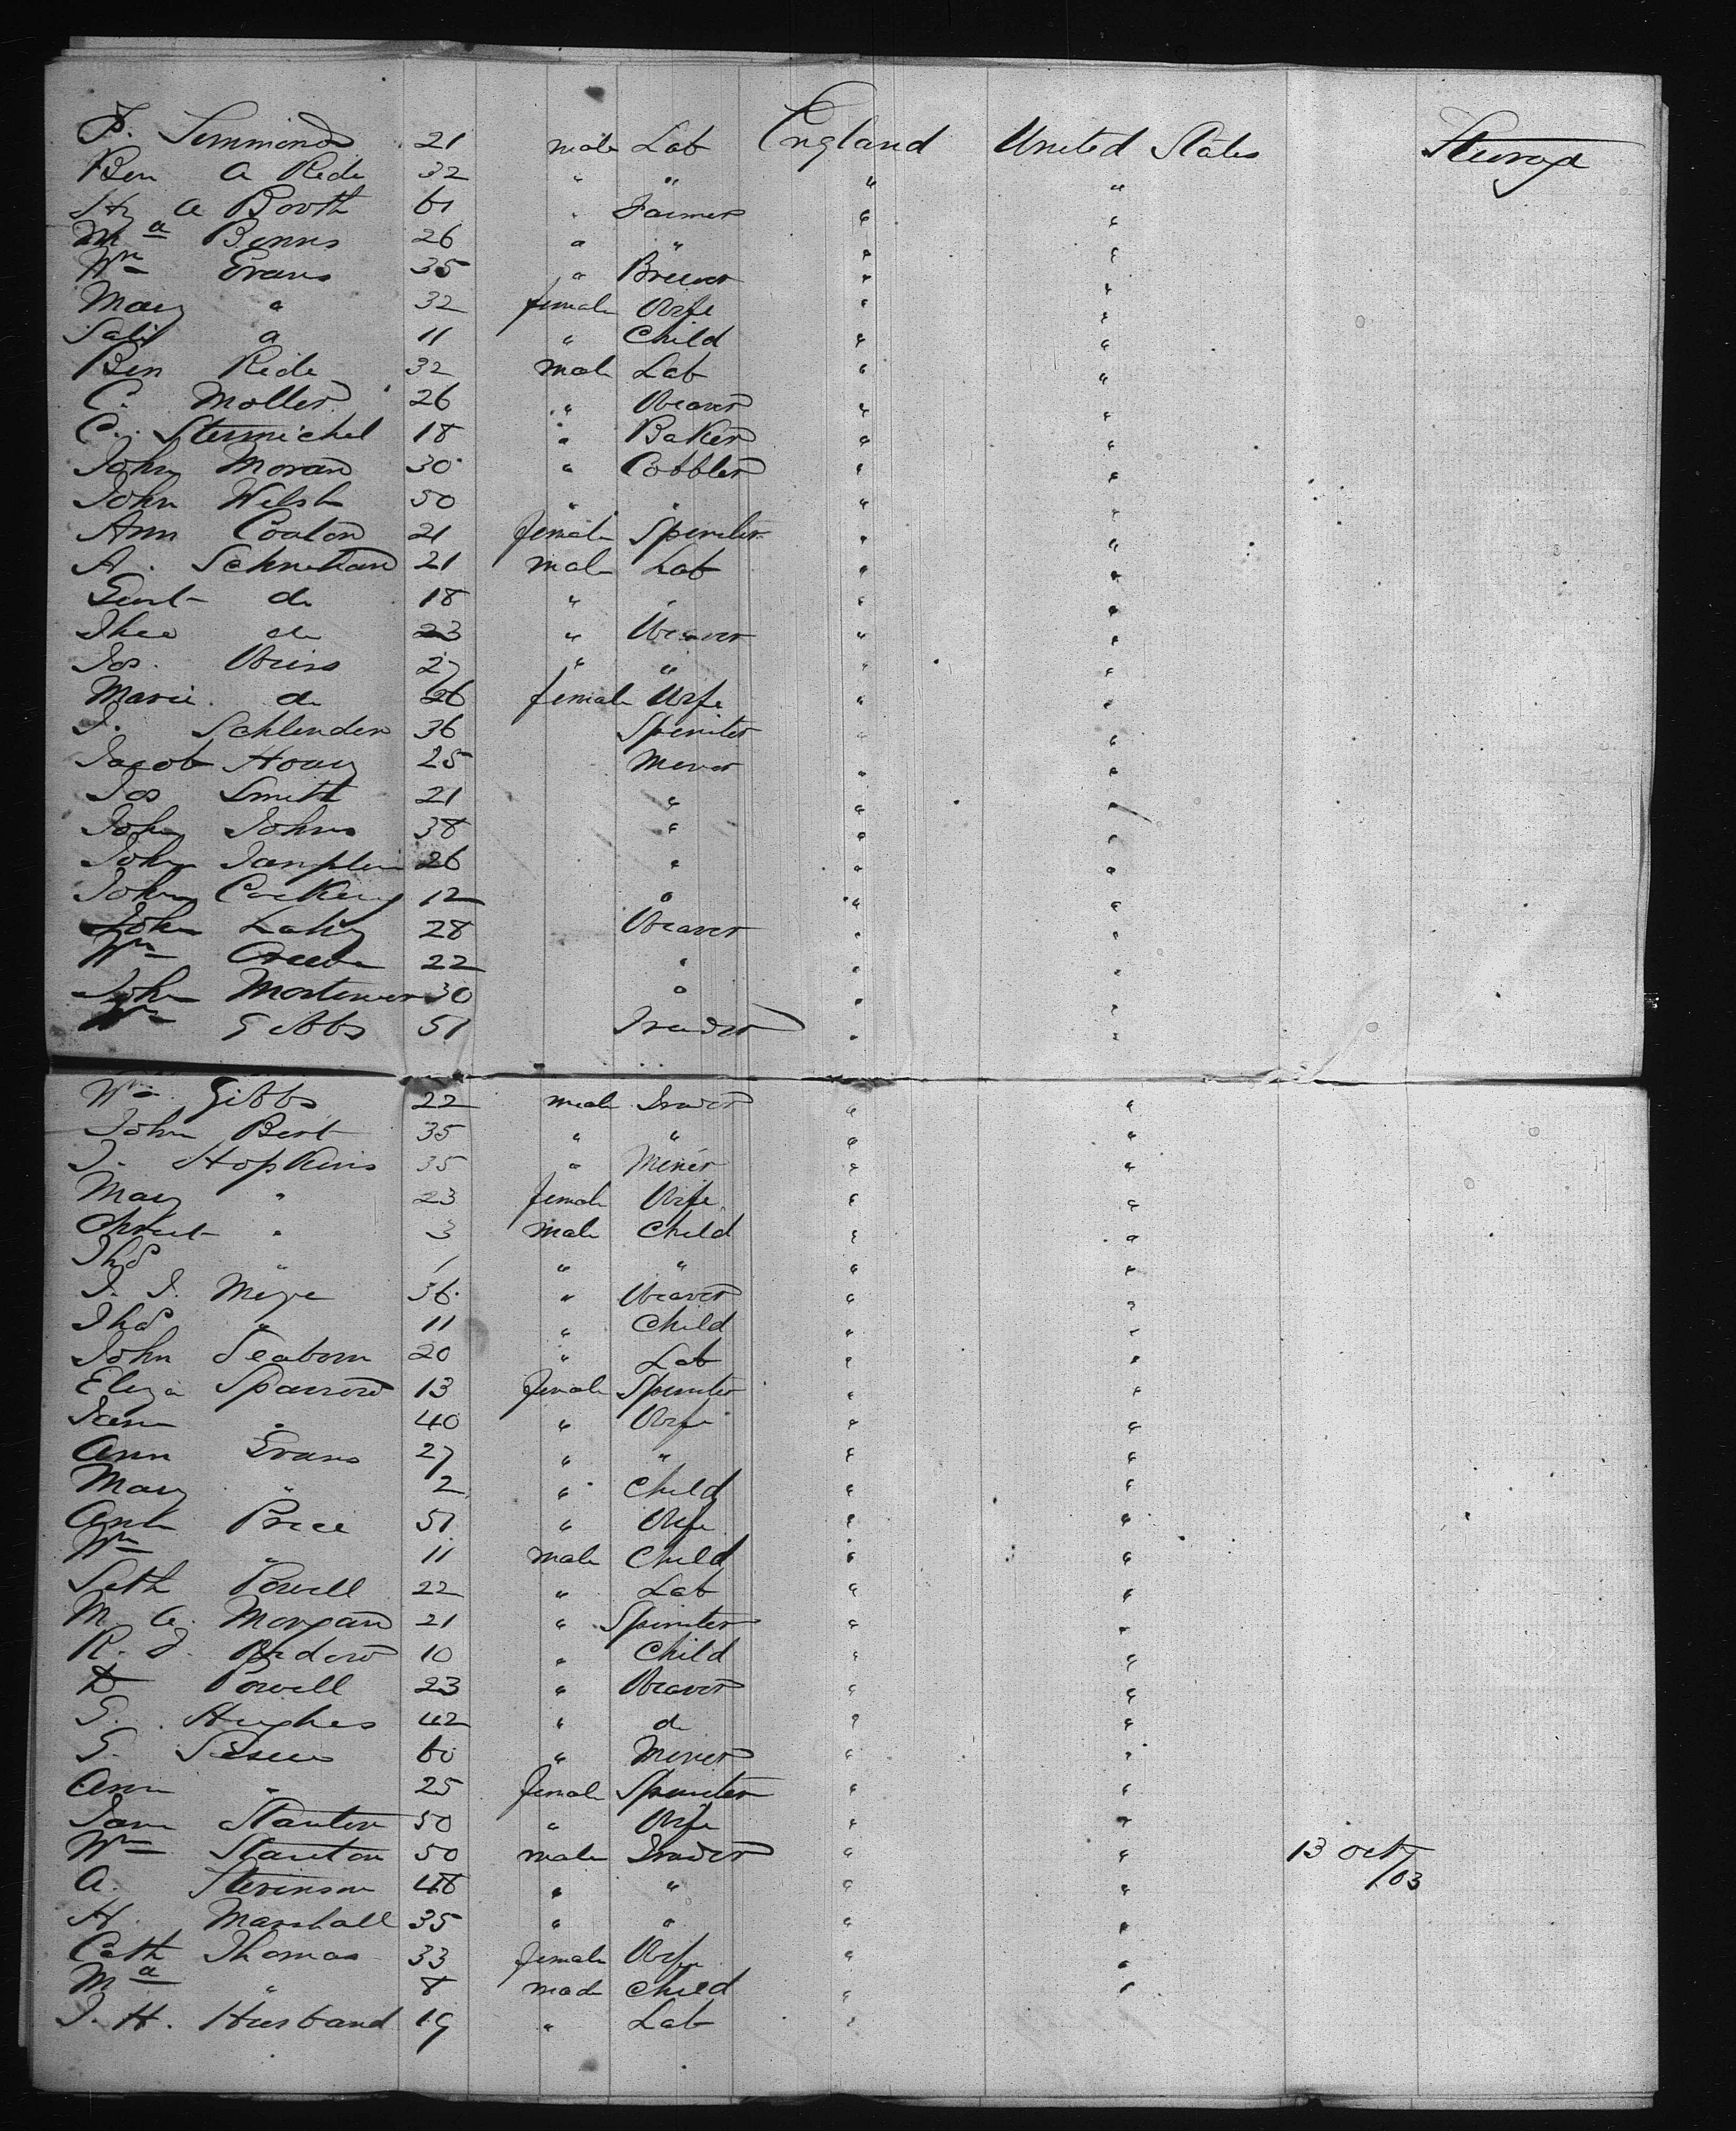 F. Simmonds 21 male Lab England United States Steerage
Ben A Ride 32 " " " "
Hy A Booth 61 " Farmer " "
Ma Binns 26 " " " "
Wm Evans 35 " Brewer " "
Mary " 32 female Wife " "
11 " Child " "
Ben Ride 32 male Lab " "
C. Moller 26 " Weaver " "
C. Stermichel 18 " Baker " "
John Moran 30 " Cobbler " "
John Welsh 50 " " " "
Ann Coalon 21 female Spinster " "
A. 21 male Lab " "
do 18 " " " "
Theo do 23 " Weaver " "
Jos. Weiss 27 " " " "
Marie do 26 female Wife " "
J. Schlender 36 Spinster " "
Jacob 25 Miner " "
Jos Smith 21 " " "
John Johns 38 " " "
John Jamplin 26 " " "
John 12 " " "
John Lahy 28 Weaver " "
Wm 22 " " "
John Mortimer 30 " " "
Wm Gibbs 51 Trader " "
Wm Gibbs 22 male Trader " "
John Bert 35 " " " "
J. Hopkins 35 " Miner " "
Mary " 23 female Wife " "
" 3 male Child " "
Thos " 1 " " " "
J. J. Meye 36 " Weaver " "
Thos " 11 " Child " "
John Seaborn 20 " Lab " "
Eliza Sparrow 13 female Spinster " "
Jane " 40 " Wife " "
Ann Evans 27 " " " "
Mary " 2 " Child " "
Ann Price 51 " Wife " "
Wm " 11 male Child " "
Seth Powell 22 " Lab " "
M. A. Morgan 21 " Spinster " "
R. J. 10 " Child " "
D Powell 23 " Weaver " "
G. Hughes 42 " do " "
G. 60 " Miner " "
Ann " 25 female Spinster " "
Jane Stanton 50 " Wife " "
Wm Stanton 50 male Trader " " 13 Oct
A. Stevinson 48 " " " " /03
H. Marshall 35 " " " "
Cath Thomas 33 female Wife " "
Ma " 8 male Child " "
J. H. Husband 19 " Lab "